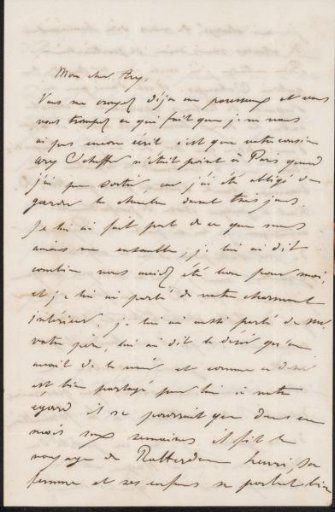 Mon cher Ary,
Vous me croyez déja un paresseux et vous
vous trompez ce qui fait que je ne vous
ai pas encore écrit c'est que votre cousin
Ary Scheffer n'était point à Paris quand
j'ai pu sortir, car j'ai été obligé de
garder la chambre durant très jours.
Je lui ai fait part de ce que nous
avons vu ensemble, je lui ai dit
combien vous aviez été bon pour moi,
et je lui ai parlé de votre charmant
intérieur. je lui ai aussi parlé de Mr
votre père, lui ai dit le desir qu'on
avait de le voir et comme ce desir
est bien partagé par lui à votre
égard il se pourrait que dans un
mois six semaines il fit le
voyage de Rotterdam henri, sa
femme et ses enfans se portent bien